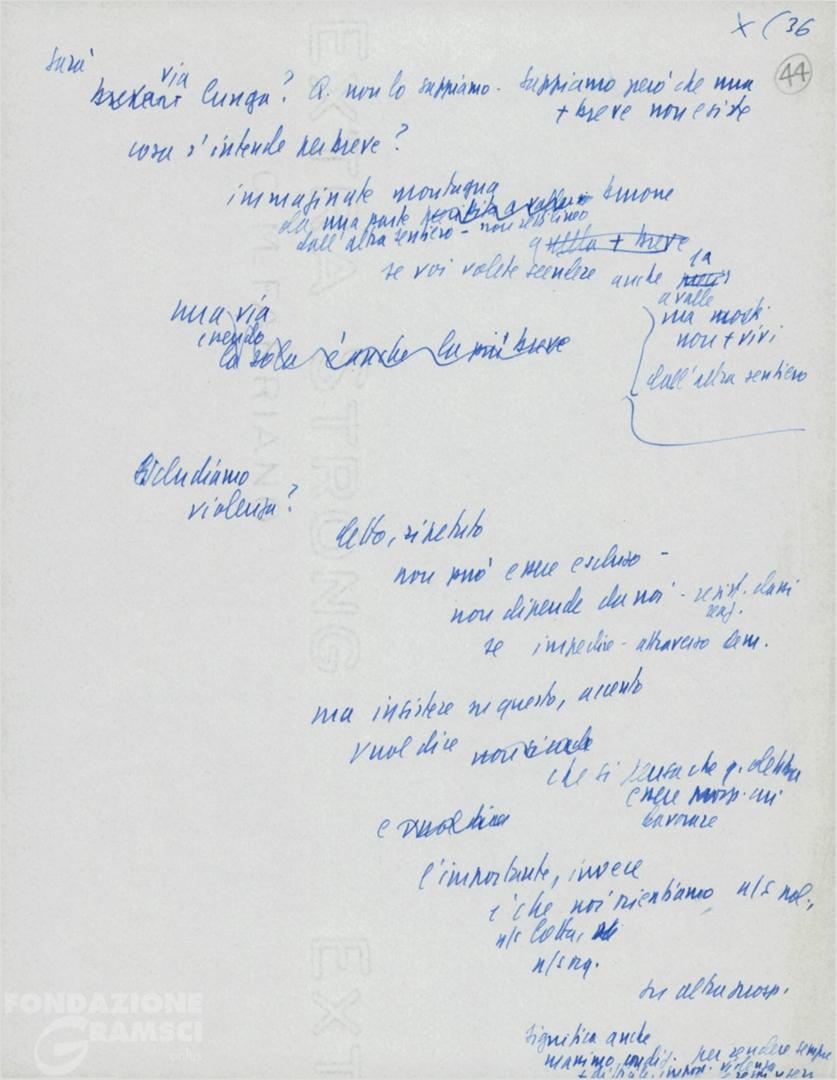 X (36
44
sarà
via
lunga? Q. non lo sappiamo - Sappiamo però che una
+ breve non esiste
cosa s'intende per breve?
immaginate montagna
da una parte burrone
dall'altra sentiero -
quella + breve
se voi volete scendere anche là
a valle
ma morti
non + vivi
dall'altra sentiero
una via
essendo
la sola è anche la più breve
Escludiamo
violenza?
detto, ripetuto
non può essere escluso -
non dipende da noi - resist. classi
reaz.
se impedire - attraverso dem.
ma insistere su questo, accento
vuol dire
che si pensa che q. debba
essere prosp. cui
lavorare
e vuol dire
l'importante, invece
è che noi orientiamo n/s pol.,
n/s lotta,
n/s org.
su altra prosp.
significa anche
per rendere sempre
violenza
FONDAZIONE
GRAMSCI
onlus
EXTRA STRONG
FABRIANO
EXT